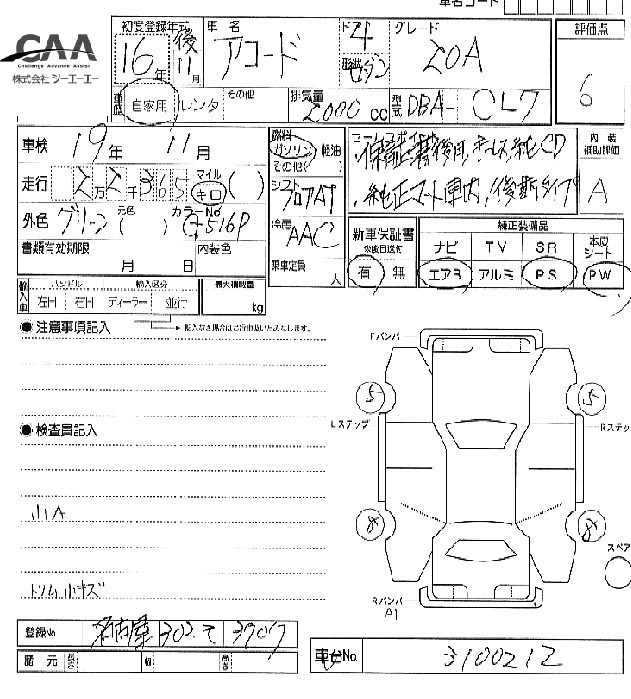 車名コード
CAA
Challenge Advance Assist
株式会社 シーエーエー
初度登録年式 車名 ドア グレード 評価点
16年 後11月 アコード 4 形状 セダン 20A 6
車歴 自家用 レンタ その他 排気量 2000 cc 型式 DBA- CL7
車検 19年 11月
燃料 ガソリン 軽油 その他( )
内装補助評価 A
走行 2万2千365 マイル キロ ( )
シフト フロアAT
外色 グリーン 元色( ) カラーNo G-516P
冷房 AAC
書類有効期限 月 日 内装色
乗車定員 人
新車保証書 有 無
純正装備品
ナビ TV SR 本皮シート
エアB アルミ PS PW
輸入車 ハンドル 輸入区分 左H 右H ディーラー 並行 最大積載量 kg
注意事項記入
Fバンパ
5 5
Lステップ Rステップ
検査員記入
小A
8 8
スペア
トリム小キズ
Rバンパ
A1
登録No 名古屋 302 て 3907
車台No. 3100212
諸元 長さ 幅 高さ